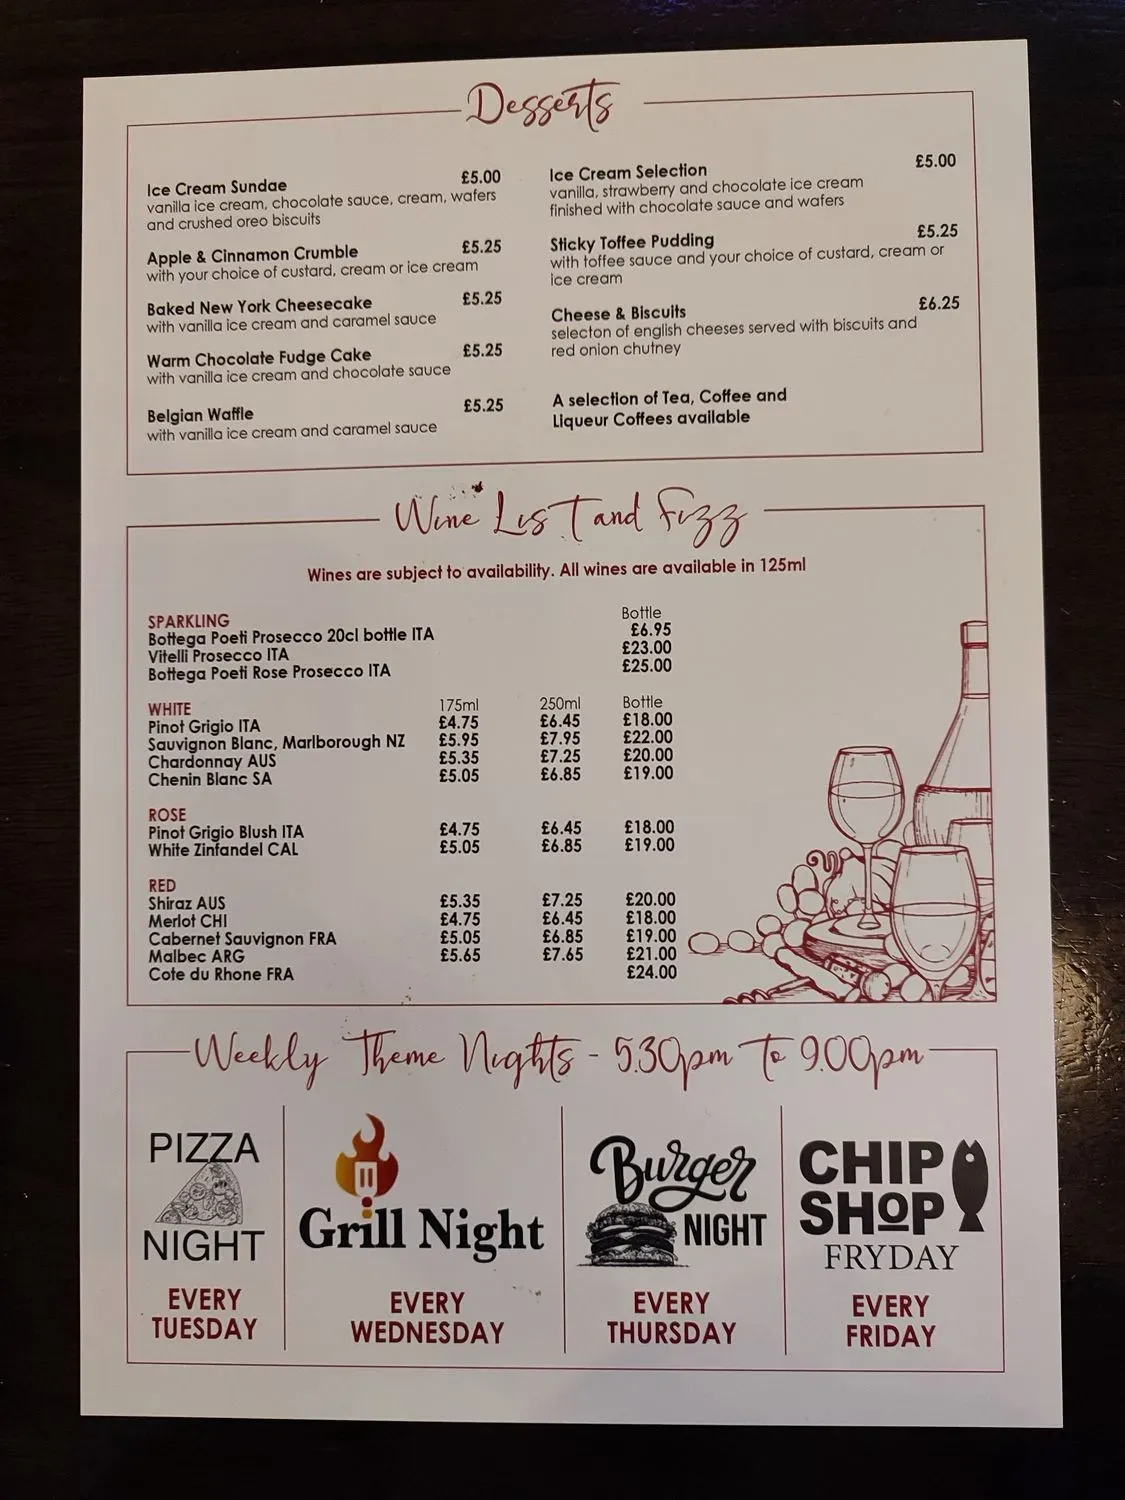 Desserts
Ice Cream Sundae £5.00
vanilla ice cream, chocolate sauce, cream, wafers
and crushed oreo biscuits
Apple & Cinnamon Crumble £5.25
with your choice of custard, cream or ice cream
Baked New York Cheesecake £5.25
with vanilla ice cream and caramel sauce
Warm Chocolate Fudge Cake £5.25
with vanilla ice cream and chocolate sauce
Belgian Waffle £5.25
with vanilla ice cream and caramel sauce
Ice Cream Selection £5.00
vanilla, strawberry and chocolate ice cream
finished with chocolate sauce and wafers
Sticky Toffee Pudding £5.25
with toffee sauce and your choice of custard, cream or
ice cream
Cheese & Biscuits £6.25
selecton of english cheeses served with biscuits and
red onion chutney
A selection of Tea, Coffee and
Liqueur Coffees available
Wine List and Fizz
Wines are subject to availability. All wines are available in 125ml
SPARKLING Bottle
Bottega Poeti Prosecco 20cl bottle ITA £6.95
Vitelli Prosecco ITA £23.00
Bottega Poeti Rose Prosecco ITA £25.00
WHITE 175ml 250ml Bottle
Pinot Grigio ITA £4.75 £6.45 £18.00
Sauvignon Blanc, Marlborough NZ £5.95 £7.95 £22.00
Chardonnay AUS £5.35 £7.25 £20.00
Chenin Blanc SA £5.05 £6.85 £19.00
ROSE
Pinot Grigio Blush ITA £4.75 £6.45 £18.00
White Zinfandel CAL £5.05 £6.85 £19.00
RED
Shiraz AUS £5.35 £7.25 £20.00
Merlot CHI £4.75 £6.45 £18.00
Cabernet Sauvignon FRA £5.05 £6.85 £19.00
Malbec ARG £5.65 £7.65 £21.00
Cote du Rhone FRA £24.00
Weekly Theme Nights - 5.30pm to 9.00pm
PIZZA
NIGHT
EVERY
TUESDAY
Grill Night
EVERY
WEDNESDAY
Burger
NIGHT
EVERY
THURSDAY
CHIP
SHOP
FRYDAY
EVERY
FRIDAY